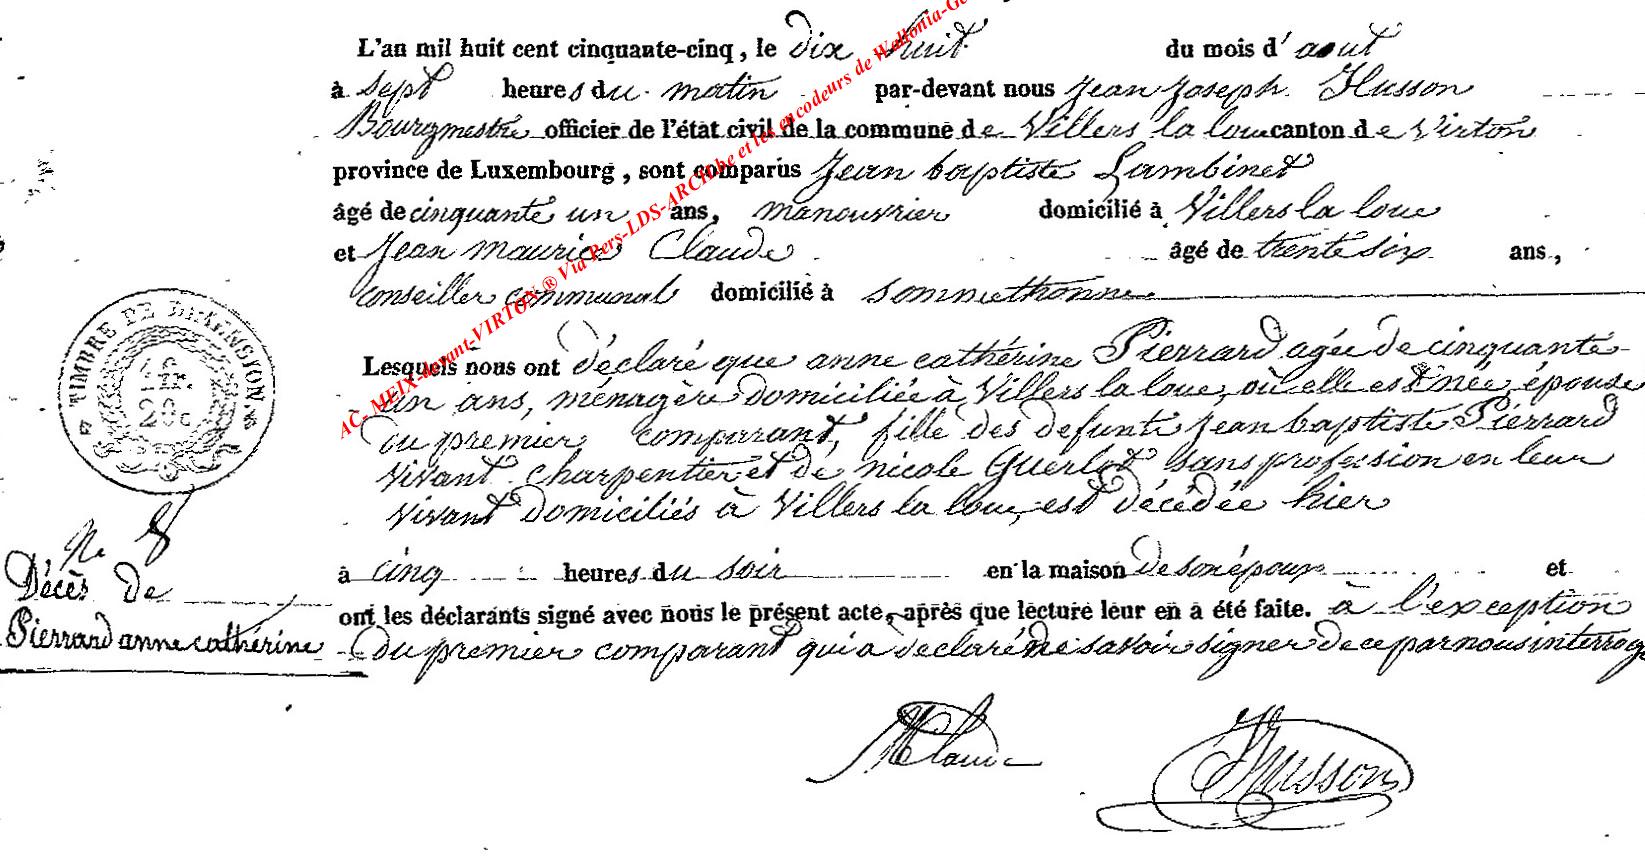 L'an mil huit cent cinquante-cinq, le dix huit du mois d'aout
à sept heures du matin par-devant nous Jean Joseph Husson
Bourgmestre officier de l'état civil de la commune de Villers la loue canton de Virton
province de Luxembourg, sont comparus Jean baptiste Lambinet
âgé de cinquante un ans, manouvrier domicilié à Villers la loue
et Jean maurice Claude âgé de trente six ans,
conseiller communal domicilié à Sommethonne
Lesquels nous ont déclaré que anne cathérine Pierrard agée de cinquante
un ans, ménagère domiciliée à Villers la loue, où elle est née, épouse
du premier comparant, fille des defunts Jean baptiste Pierrard
vivant charpentier et de nicole Guerlot sans profession en leur
vivant domiciliés à Villers la loue, est décédée hier
à cinq heures du soir en la maison de son époux et
ont les déclarants signé avec nous le présent acte, après que lecture leur en a été faite. à l'exception
du premier comparant qui a declaré ne savoir signer de ce par nous interrogé
MClaude
Husson
TIMBRE DE DIMENSION
N. 8
Décès de
Pierrard anne cathérine
AC- MEIX-devant-VIRTON ® Via Pers-LDS-ARCHbe et les encodeurs de Wallonia-Ge